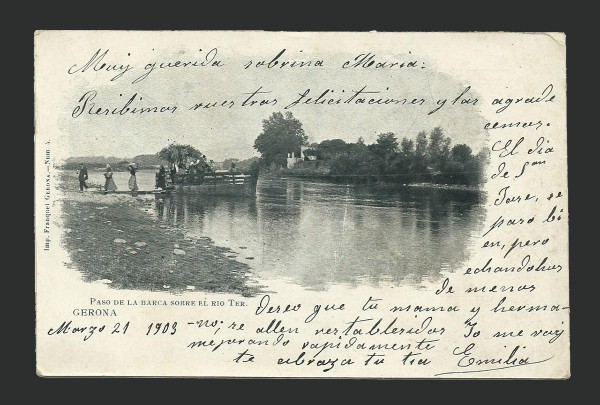 Muy querida sobrina Maria:
Recibimos vuestras felicitaciones y las agrade
cemos.
El dia
de Sn
Jose, se
paso bi
en, pero
echandoos
de menos
Imp. Franquet Gerona.—Núm. 4.
Paso de la barca sobre el rio Ter.
GERONA
Deseo que tu mama y herma-
Marzo 21 1903 -no, se allen restablecidos Yo me voy
mejorando rapidamente
te abraza tu tia Emilia